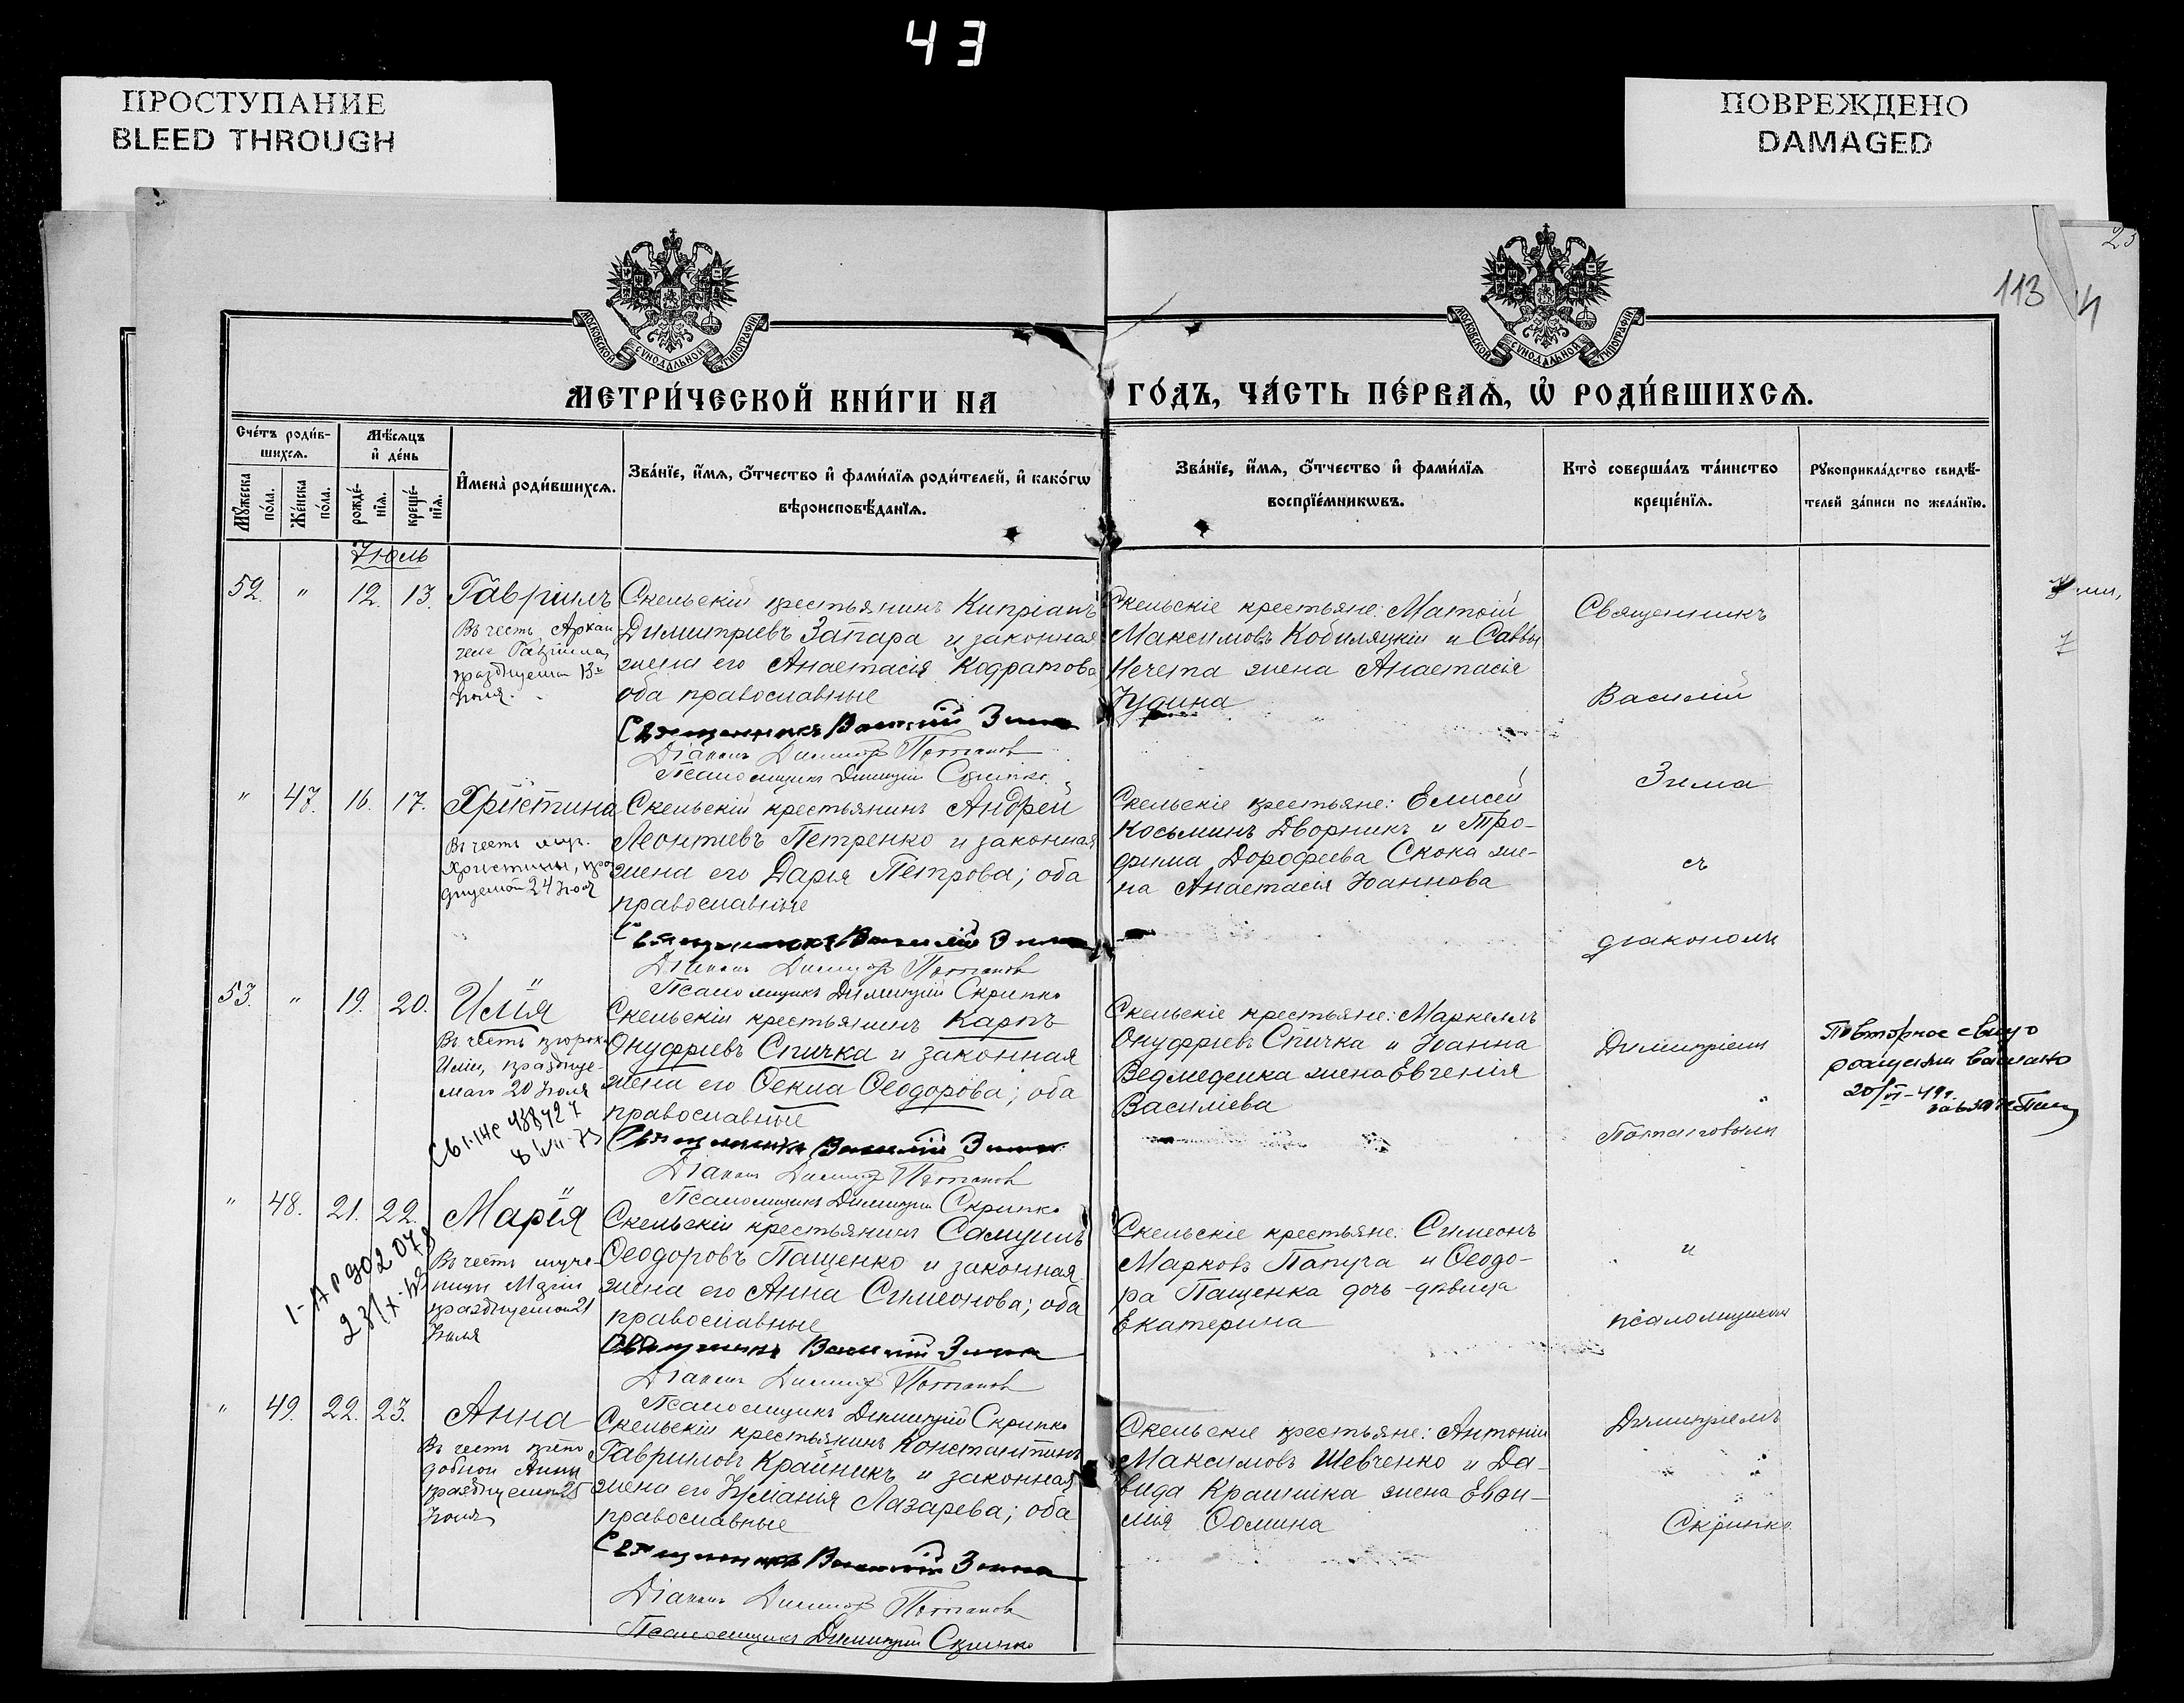 43
ПРОСТУПАНИЕ
BLEED THROUGH
ПОВРЕЖДЕНО
DAMAGED
23
113
МОСКОВСКОЙ СѴНОДАЛЬНОЙ ТИПОГРАФІИ
МОСКОВСКОЙ СѴНОДАЛЬНОЙ ТИПОГРАФІИ
МЕТРИ́ЧЕСКОЙ КНИ́ГИ НА ГО́ДЪ, ЧА́СТЬ ПЕ́РВАѦ, Ѡ҆ РОДИ́ВШИХСѦ.
Сче́тъ роди́в-
шихсѧ.
Мꙋ́жеска по́ла.
Же́нска по́ла.
Мѣ́сѧцъ
и҆ де́нь
рожде́-
нїѧ.
креще́-
нїѧ.
И҆мена̀ роди́вшихсѧ.
Зва́нїе, и҆́мѧ, ѻ҆́тчество и҆ фами́лїѧ роди́телей, и҆ како́гѡ
вѣроисповѣ́данїѧ.
Зва́нїе, и҆́мѧ, ѻ҆́тчество и҆ фами́лїѧ
воспрїе́мникѡвъ.
Кто̀ соверша́лъ та́инство
креще́нїѧ.
Рꙋкоприкла́дство свидѣ́-
телей за́писи по жела́нїю.
Іюль
52. " 12. 13. Гавріилъ
Въ честь Архан
гела Гавріила,
празднуемаго 13го
Іюля.
Скельскій крестьянинъ Кипріанъ
Димитріевъ Запара и законная
жена его Анастасія Кодратова
оба православные
Священникъ Василій Зима
Діаконъ Димитр Потапов
Псаломщикъ Димитрій Скрипко
Скельскіе крестьяне: Матѳій
Максимовъ Кобиляцкій и Саввы
Нечета жена Анастасія
Іудина
Священникъ
Василій
Зима
съ
діакономъ
Димитріемъ
Потаповымъ
и
псаломщикомъ
Димитріемъ
Скрипко
" 47. 16. 17. Христина
Въ честь муч.
Христины, праз
днуемой 24 Іюля
Скельскій крестьянинъ Андрей
Леонтіевъ Петренко и законная
жена его Дарья Петрова; оба
православные
Священникъ Василій Зима
Діаконъ Димитр Потапов
Псаломщикъ Димитрій Скрипко
Скельскіе крестьяне: Елисей
Косьминъ Дворникъ и Тро-
фима Дорофеева Скока же-
на Анастасія Іоаннова
53. " 19. 20. Илія
Въ честь пророка
Иліи, праздиуе-
маго 20 Іюля
Скельскій крестьянинъ Карпъ
Онуфріевъ Спичка и законная
жена его Ѳекла Ѳеодорова; оба
православные
Священникъ Василій Зима
Діаконъ Димитр Потапов
Псаломщикъ Димитрій Скрипко
Скельскіе крестьяне: Маркеллъ
Онуфріевъ Спичка и Іоанна
Ведмеденка жена Евгенія
Василіева
Повторное свид-о
20/VI-49г.
" 48. 21. 22. Марія
Въ честь муче-
ницы Маріи
празднуемой 21
Іюля
Скельскій крестьянинъ Самуилъ
Ѳеодоровъ Пащенко и законная
жена его Анна Симеонова; оба
православные
Священникъ Василій Зима
Діаконъ Димитр Потапов
Псаломщикъ Димитрій Скрипко
Скельскіе крестьяне: Симеонъ
Марковъ Папуга и Ѳеодо-
ра Пащенка дочь-дѣвица
Екатерина
" 49. 22. 23. Анна
Въ честь препо
добной Анны
празднуемой 25
Іюля
Скельскій крестьянинъ Константинъ
Гавриловъ Крайникъ и законная
жена его Іуліанія Лазарева; оба
православные
Священникъ Василій Зима
Діаконъ Димитр Потапов
Псаломщикъ Димитрій Скрипко
Скельскіе крестьяне: Антоній
Максимовъ Шевченко и Да-
вида Крайника жена Евѳи-
мія Ѳомина